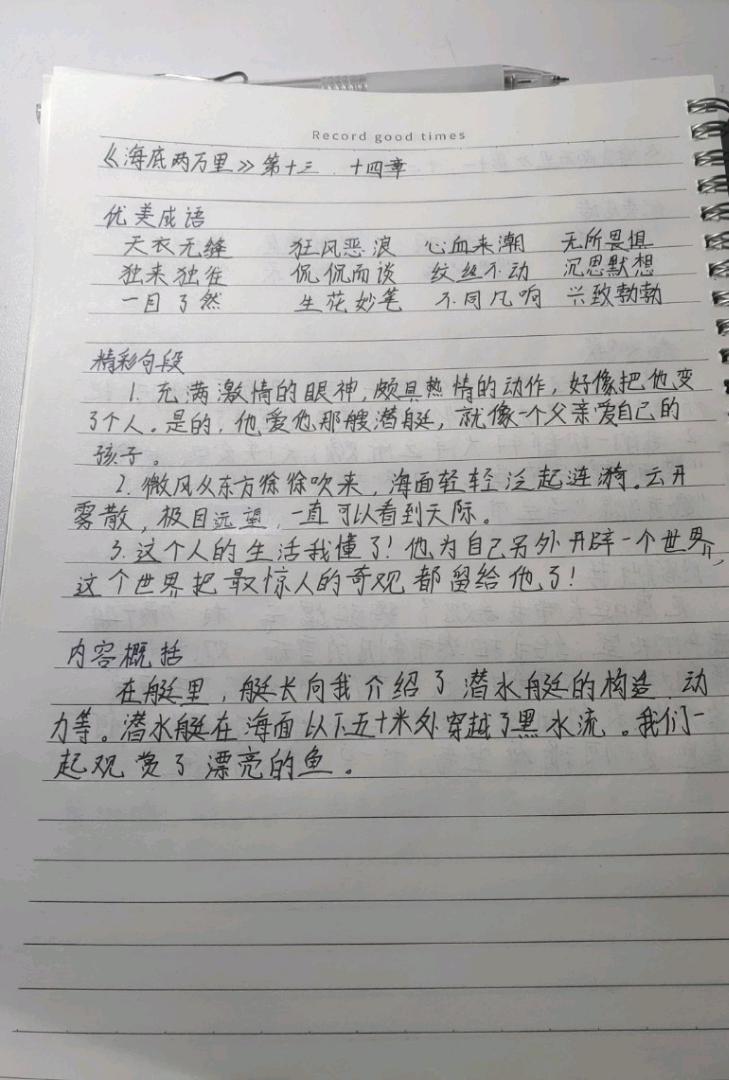 Record good times
《海底两万里》第十三、十四章
优美成语
天衣无缝 狂风恶浪 心血来潮 无所畏惧
独来独往 侃侃而谈 纹丝不动 沉思默想
一目了然 生花妙笔 不同凡响 兴致勃勃
精彩句段
1. 充满激情的眼神,颇具热情的动作,好像把他变
了个人。是的,他爱他那艘潜艇,就像一个父亲爱自己的
孩子。
2. 微风从东方徐徐吹来,海面轻轻泛起涟漪。云开
雾散,极目远望,一直可以看到天际。
3. 这个人的生活我懂了!他为自己另外开辟一个世界,
这个世界把最惊人的奇观都留给他了!
内容概括
在艇里,艇长向我介绍了潜水艇的构造、动
力等。潜水艇在海面以下五十米外穿越了黑水流。我们一
起观赏了漂亮的鱼。